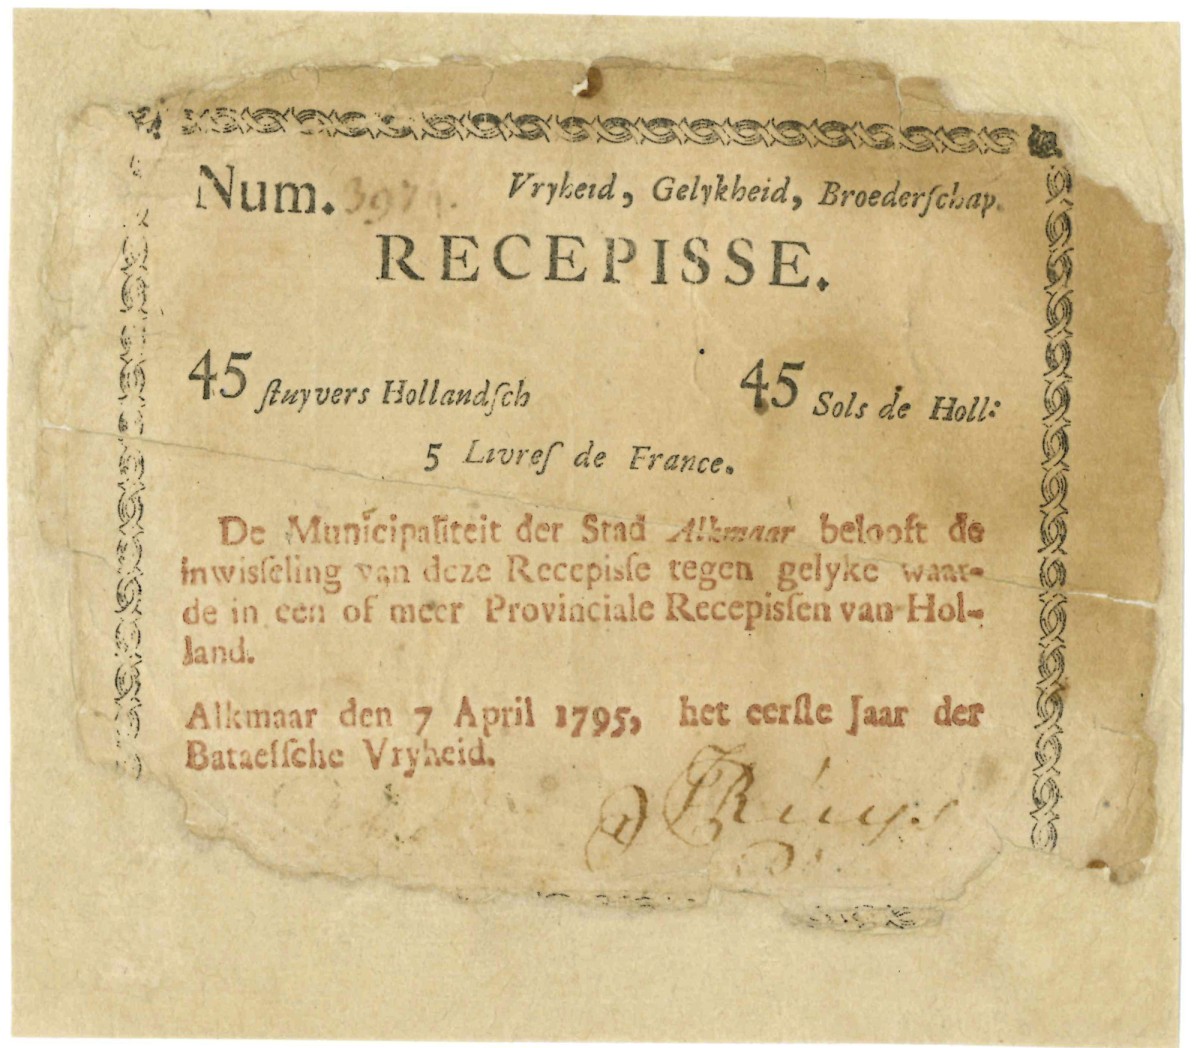 Num. 397 Vryheid, Gelykheid, Broederſchap.
RECEPISSE.
45 ſtuyvers Hollandſch 45 Sols de Holl:
5 Livreſ de France.
De Municipaliteit der Stad Alkmaar belooft de
inwisſeling van deze Recepisſe tegen gelyke waar-
de in een of meer Provinciale Recepisſen van Hol-
land.
Alkmaar den 7 April 1795, het eerſte Jaar der
Bataefſche Vryheid.